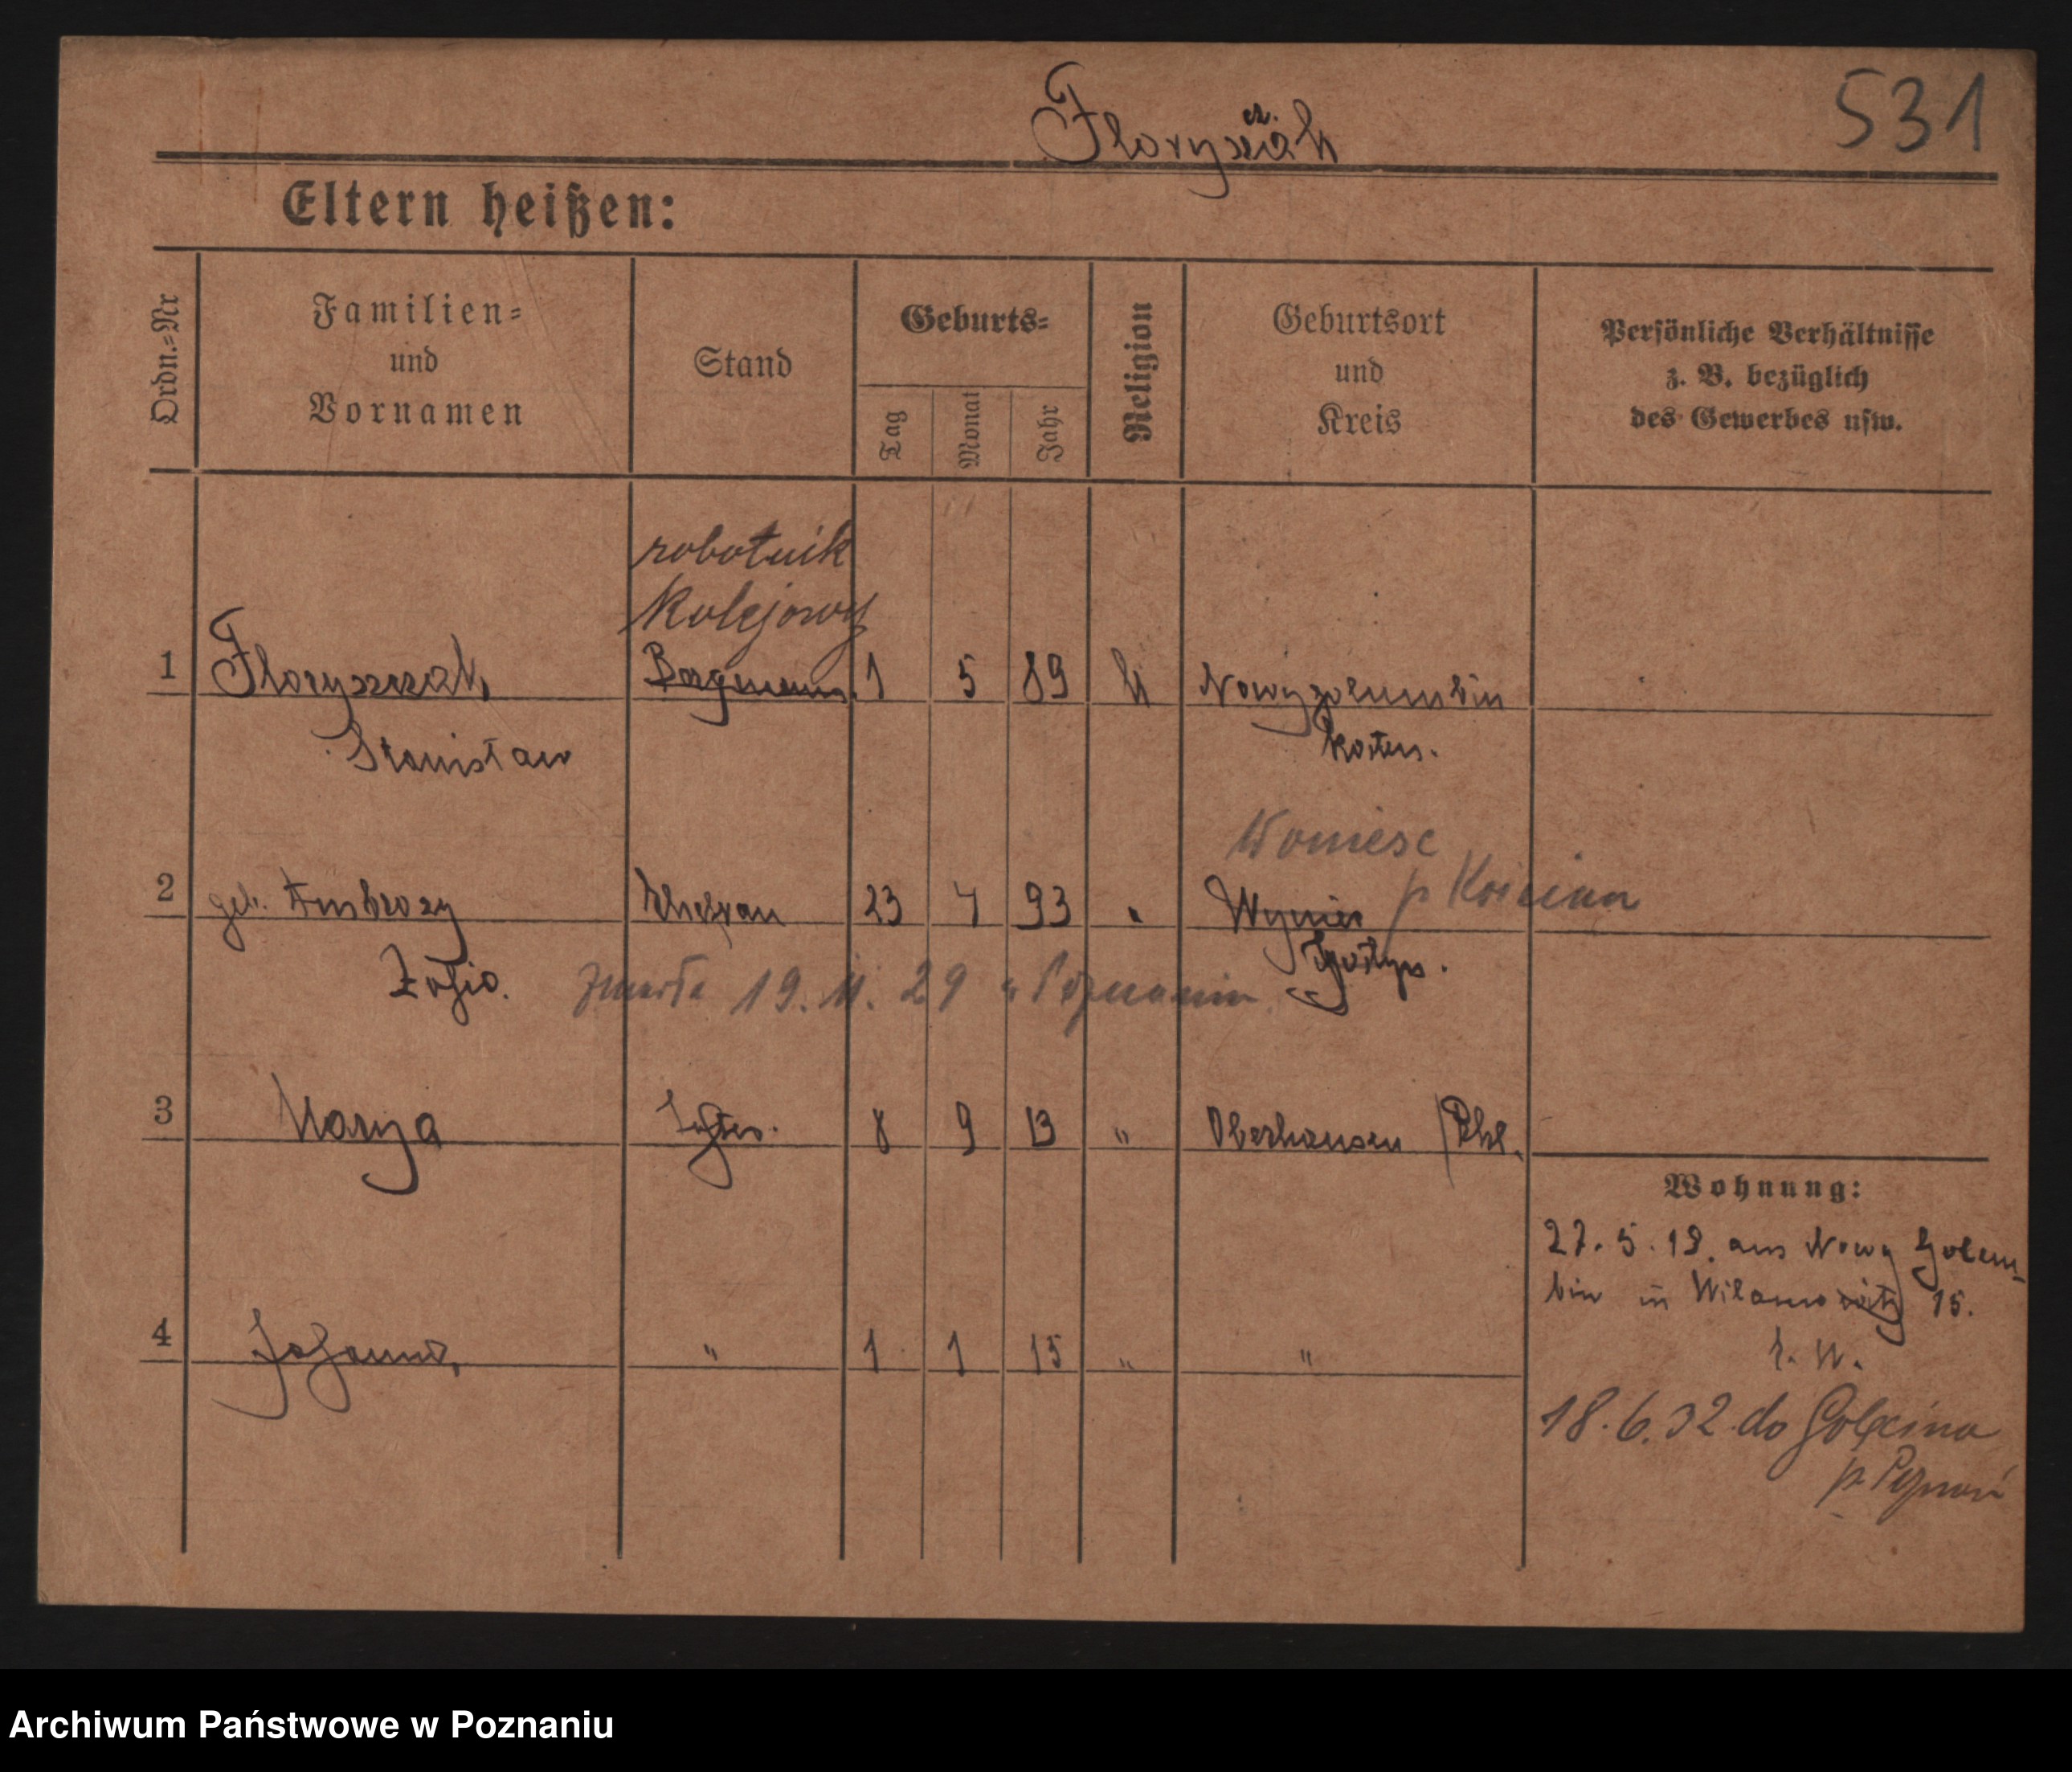 531
Floryszczak
Eltern heißen:
Ordn.=Nr
Familien=
und
Vornamen
Stand
Geburts=
Tag
Monat
Jahr
Religion
Geburtsort
und
Kreis
Persönliche Verhältnisse
z. B. bezüglich
des Gewerbes usw.
robotnik
kolejowy
1 Floryszczak, Bergmann. 1 5 89 k Nowygolembin
Stanisław Kosten.
Woniesc
p Kościan
2 geb. Ambrozy Ehefrau 23 4 93 "
Zofia. zmarła 19. 11. 29 w Poznaniu
3 Marya Tochter. 8 9 13 " Oberhausen Rhl.
Wohnung:
27. 5. 19. aus Nowy Golem-
bin in Wilamowitz 15.
4 Johanna, " 1 1 15 " "
18. 6. 32 do Golęcina
p. Poznań
Archiwum Państwowe w Poznaniu